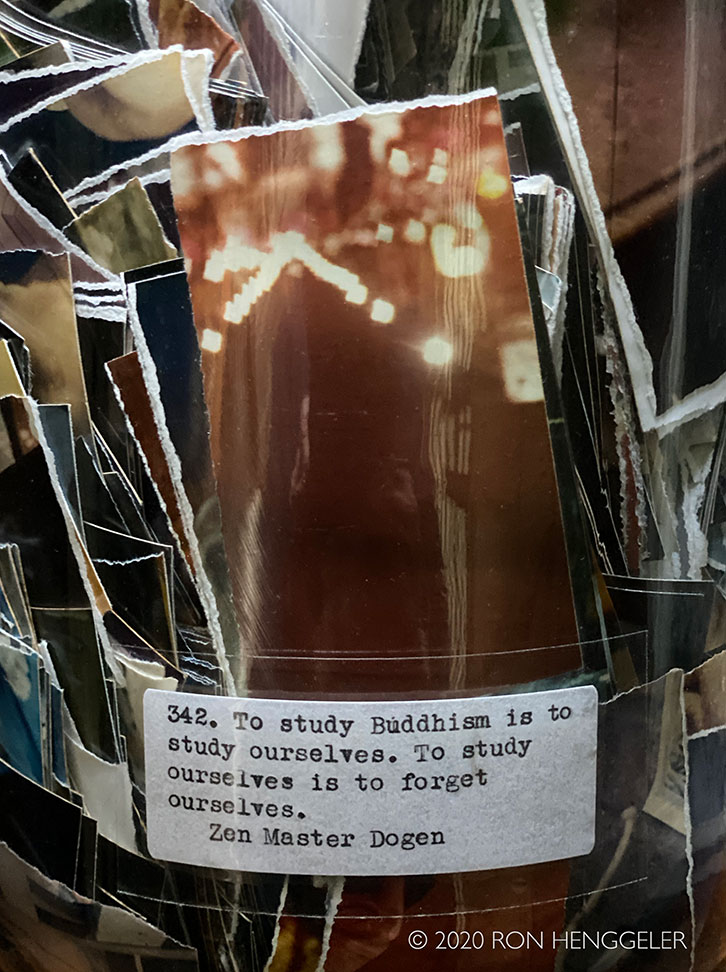 342. To study Buddhism is to
study ourselves. To study
ourselves is to forget
ourselves.
Zen Master Dogen
© 2020 RON HENGGELER